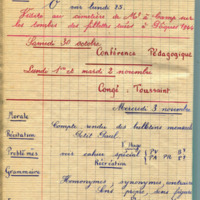 O' soir lundi 25.
Visite au cimetière de Mr A. Camp sur
les tombes des fillettes tuées à Pâques 1944
Samedi 30 octobre
Conférence Pédagogique
Lundi 1er et mardi 2 novembre
Congé : Toussaint
Mercredi 3 novembre
Morale
Compte rendu des bulletins mensuels
Récitation
Petit Paul
V. Hugo
Problèmes
sur cahier spécial
Récréation
Grammaire
Homonymes, synonymes, contraires
Sens propre, sens figuré